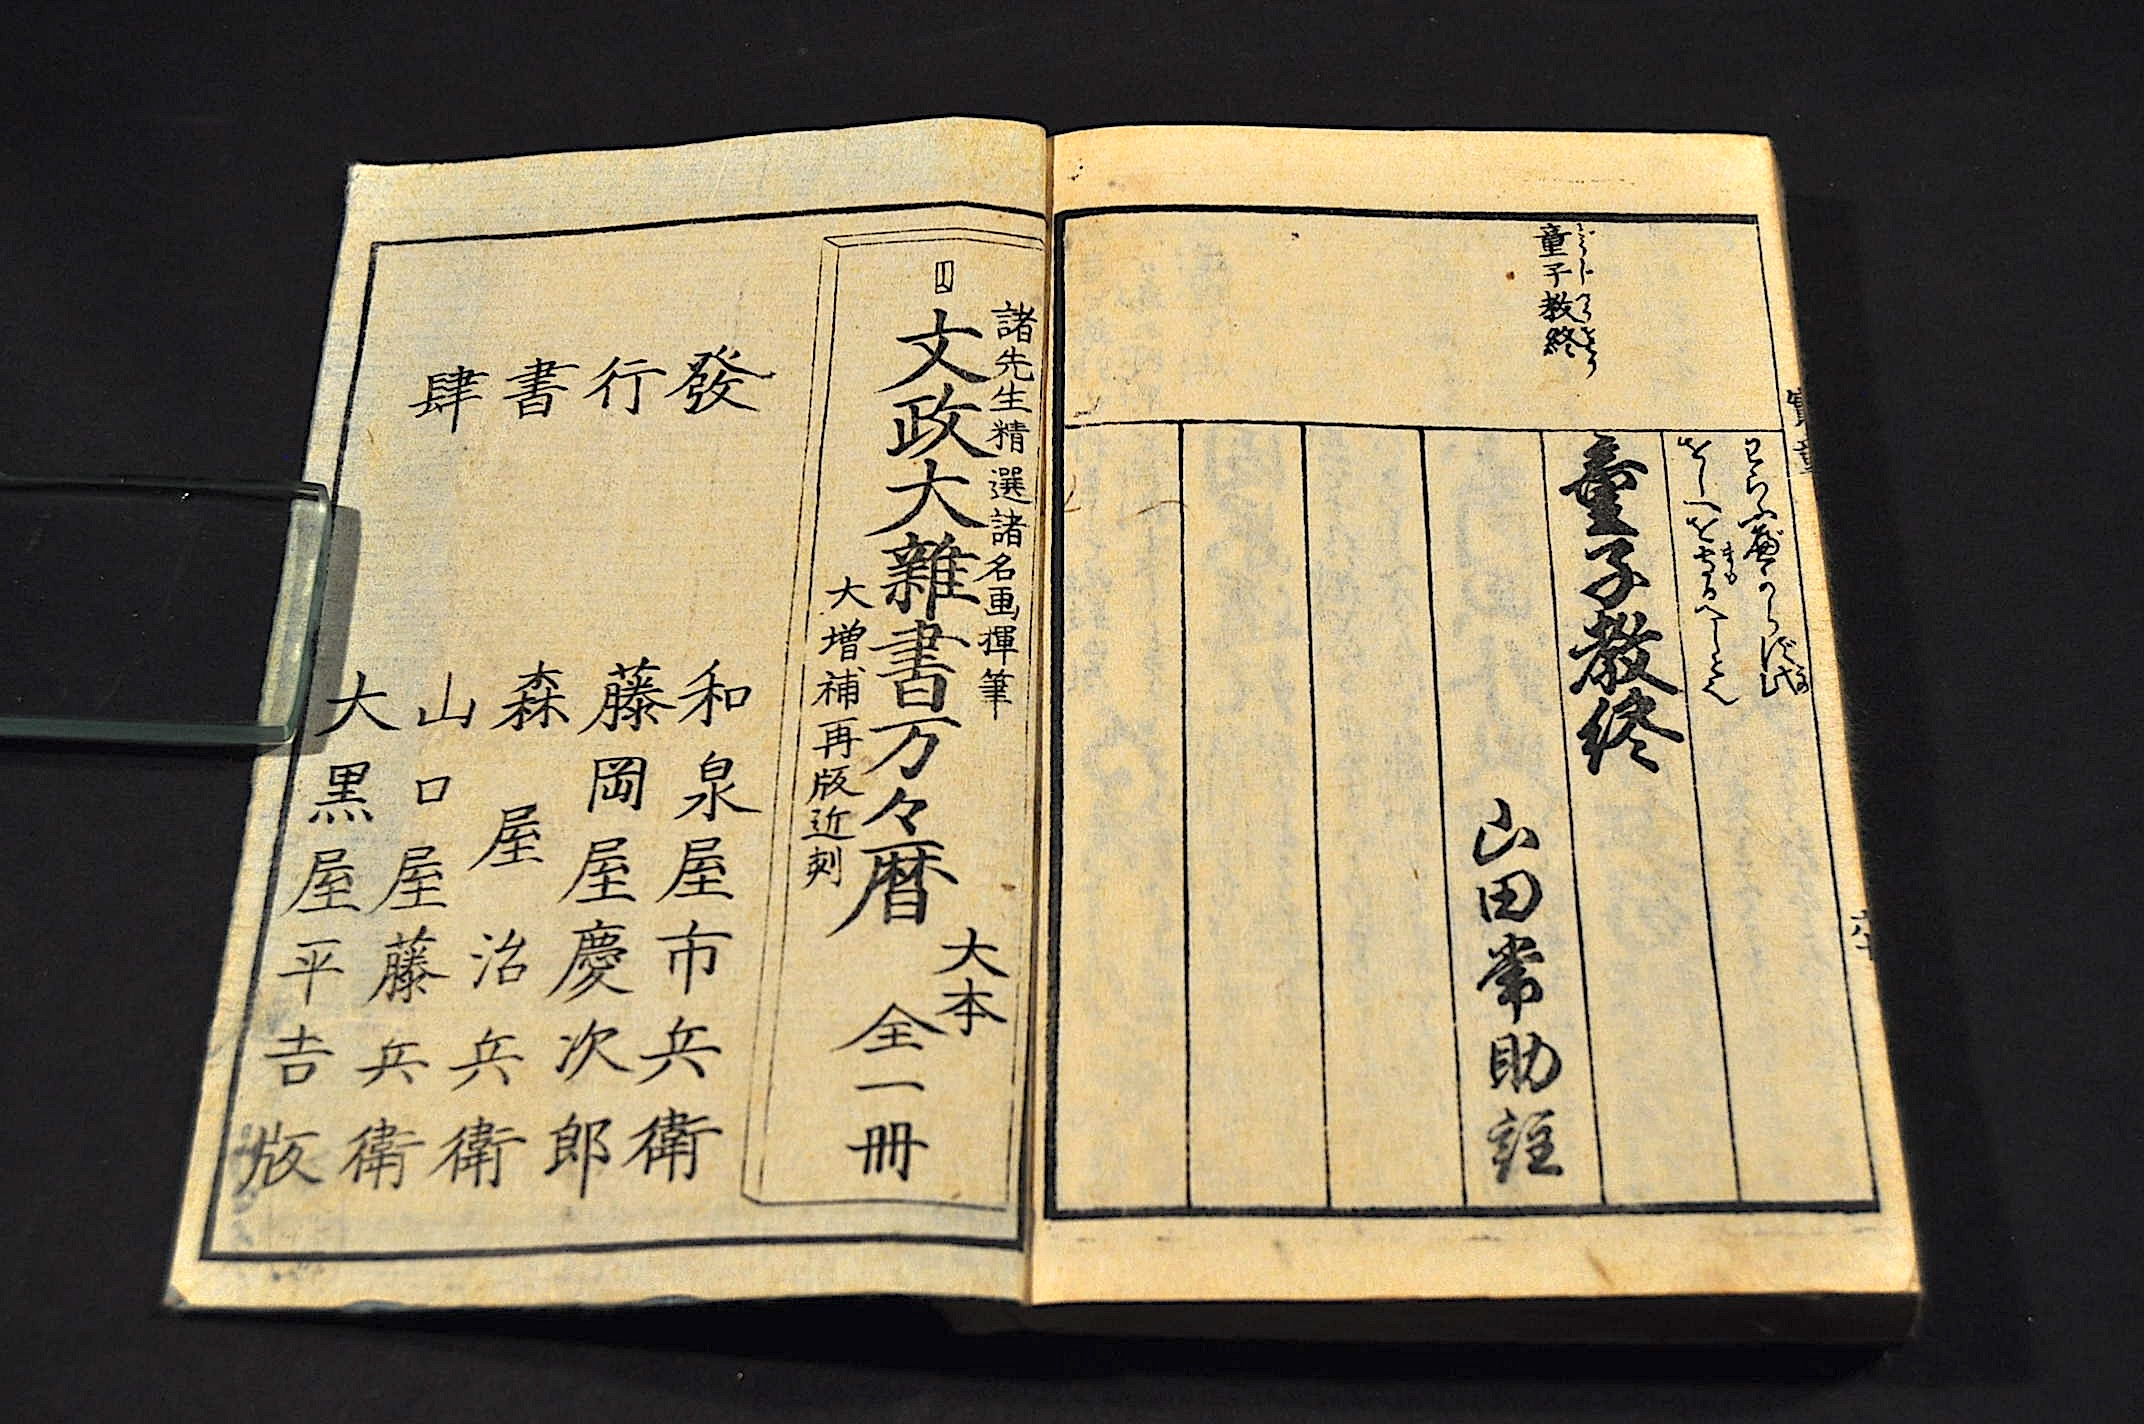 童子教終
童子教終
山田常助註
諸先生精選諸名画揮筆
文政大雜書万々暦
大本
全一冊
大増補再版近刻
發行書肆
和泉屋市兵衛
藤岡屋慶次郎
森屋治兵衛
山口屋藤兵衛
大黒屋平吉版